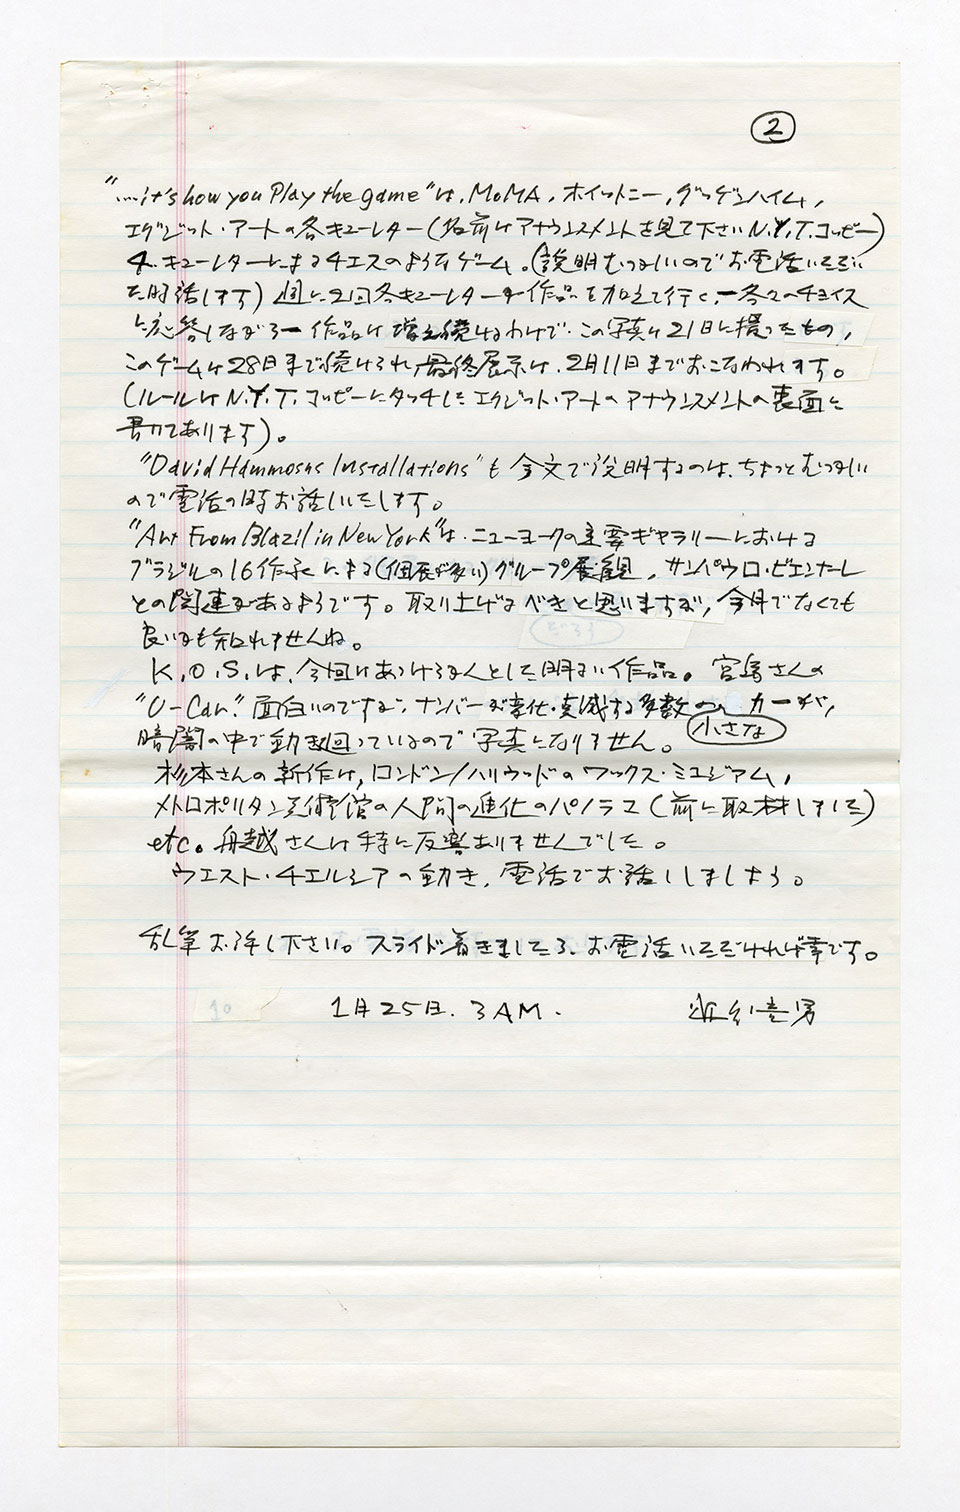 ②
"...it's how you Play the game"は、MoMA、ホイットニー、グッゲンハイム、
エグジット・アートの各キューレター(名前はアナウンスメントを見て下さいN.Y.T.コッピー)
4.キューレターによるチエスのようなゲーム。(説明むつかしいのでお電話いただい
た時話します)週に2回各キューレターが作品を加えて行く、一各々のチョイス
に応答しながら一作品は増え続けるわけで、この写真は21日に撮ったもの、
このゲームは28日まで続けられ、最終展示は、2月11日までおこなわれます。
(ルールはN.Y.T.コッピーにタッチしたエグジット・アートのアナウンスメントの裏面に
書かてあります)。
"David Hammosns Installations"も全文で説明するのは、ちょっとむつかしい
ので電話の時お話しいたします。
"Art From Blazil in New York"は、ニューヨークの主要ギャラリーにおける
ブラジルの16作家による(個展が多い)グループ展観、サンパウロ・ビエンナーレ
との関連があるようです。取り上げるべきと思いますが、今月でなくても
良いかも知れませんね。
K.O.S.は、今回はあっけらかんとした明るい作品。宮島さんの
"U-Car." 面白いのですが、ナンバーが変化・点滅する多数の小さなカーが、
暗闇の中で動き回っているので写真になりません。
杉本さんの新作は、ロンドン/ハリウッドのワックス・ミュジアム、
メトロポリタン美術館の人間の進化のパノラマ(前に取材しました)
etc。舟越さんは特に反響ありませんでした。
ウエスト・チエルシアの動き、電話でお話ししましょう。
乱筆お許し下さい。スライド着きましたら、お電話いただければ幸です。
1月25日. 3AM.
10